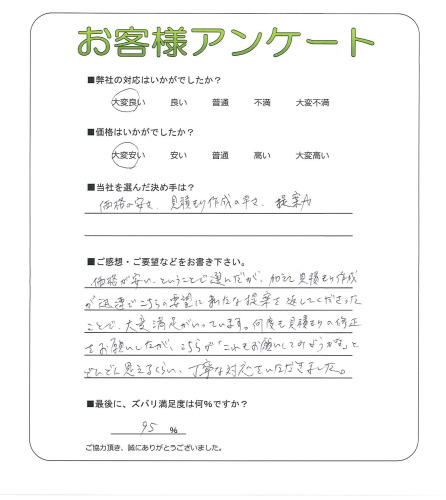 お客様アンケート
■弊社の対応はいかがでしたか?
大変良い 良い 普通 不満 大変不満
■価格はいかがでしたか?
大変安い 安い 普通 高い 大変高い
■当社を選んだ決め手は?
価格の安さ、見積もり作成の早さ、提案力
■ご感想・ご要望などをお書き下さい。
価格が安い、ということで選んだが、加えて見積もり作成
が迅速でこちらの要望に新たな提案を返してくださった
ことで、大変満足がいっています。何度も見積もりの修正
をお願いしたが、こちらが「これもお願いしてみようかな」と
どんどん思えるくらい、丁寧な対応をいただきました。
■最後に、ズバリ満足度は何%ですか?
95 %
ご協力頂き、誠にありがとうございました。